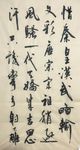 惜秦皇漢武略輸
文彩唐宗宋祖稍遜
風騷一代天驕成吉思
汗只識彎弓射雕